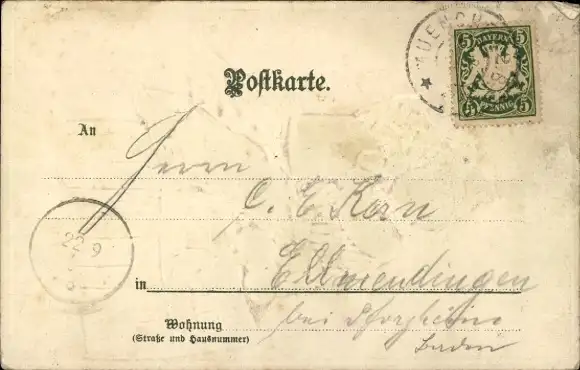 MUENCH
5 BAYERN 5
5 PFENNIG 5
Postkarte.
An
Herrn
C. E. Korn
22 9
in Ellmendingen
Wohnung
(Straße und Hausnummer)
bei Pforzheim
Baden